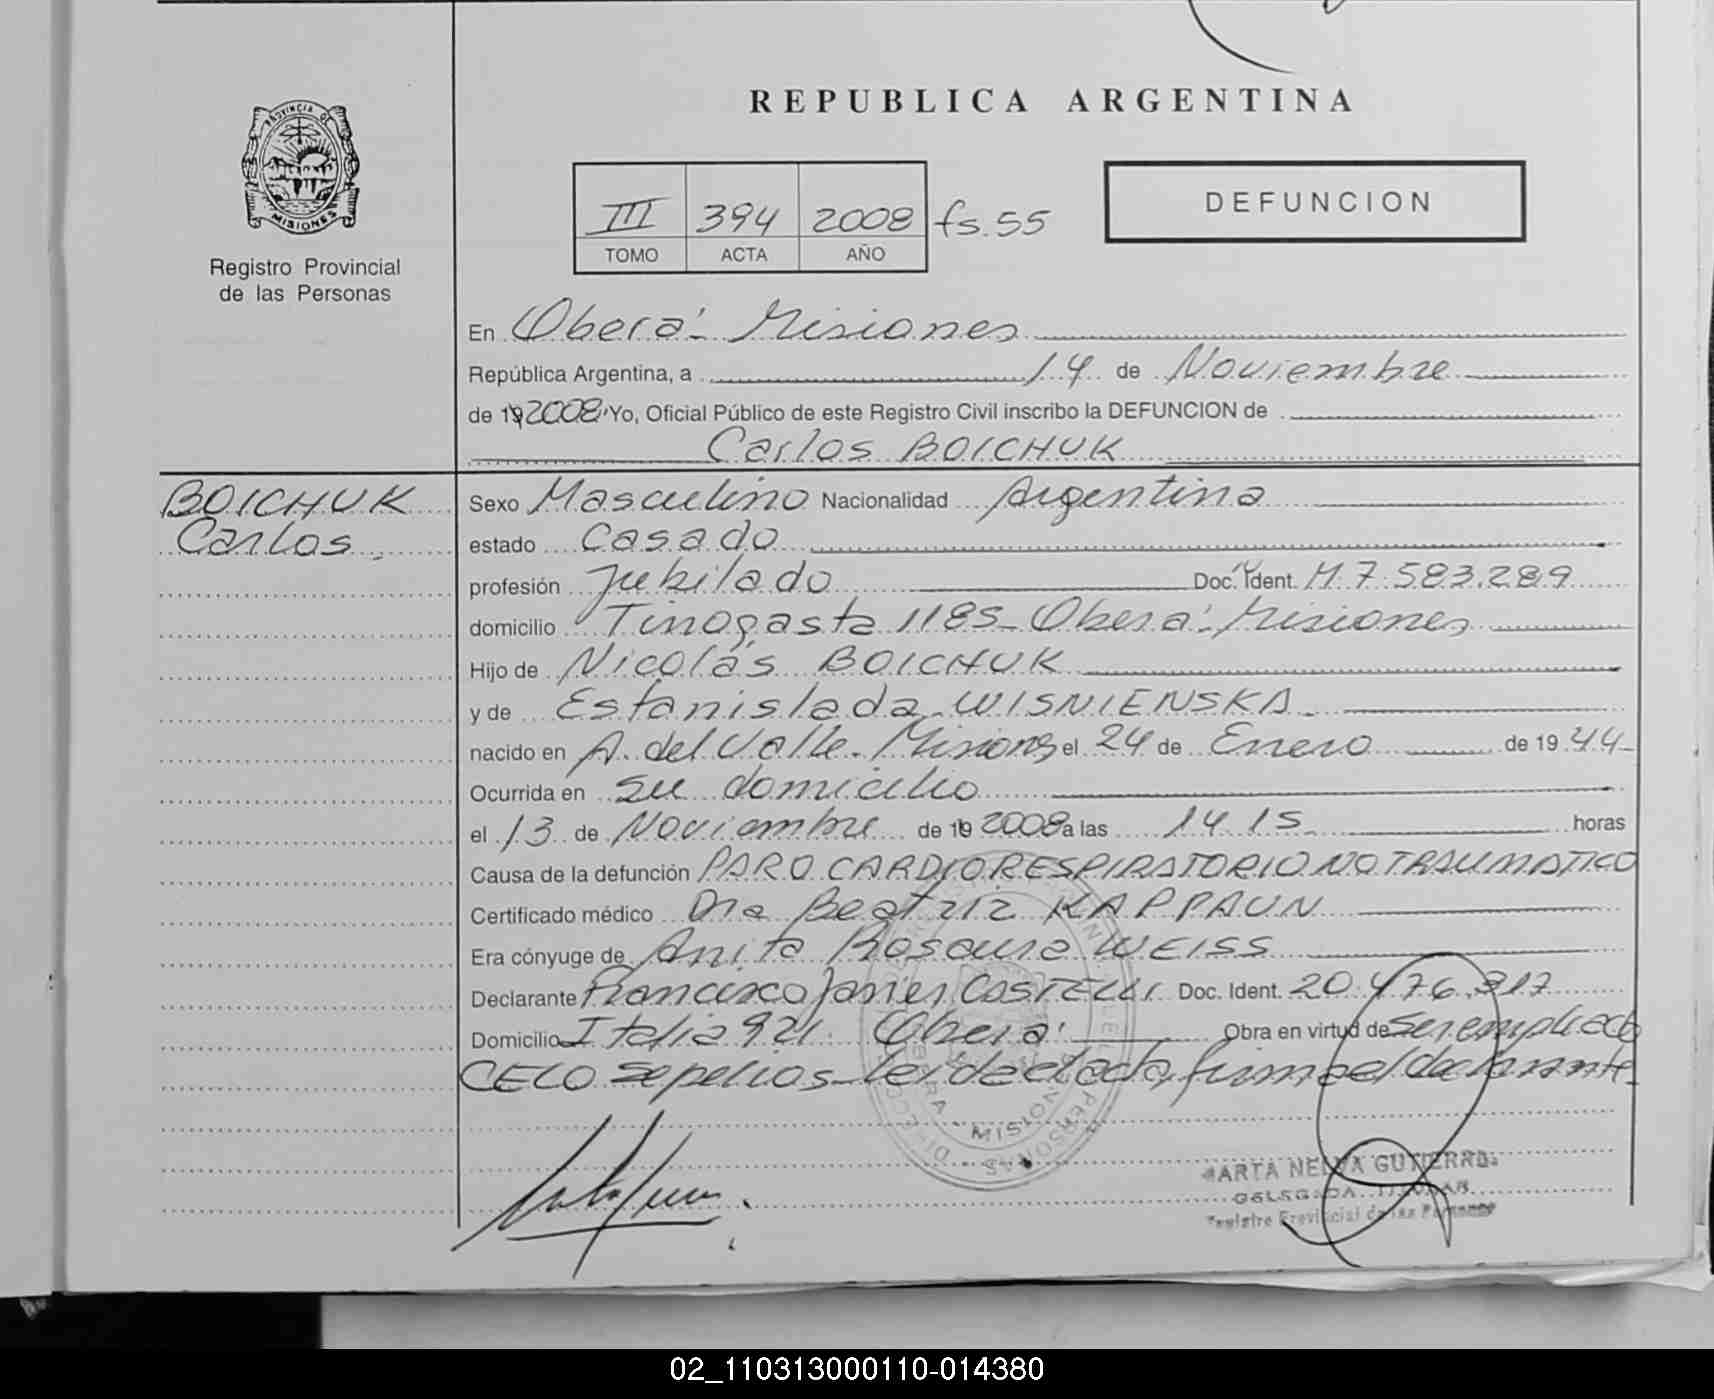 REPUBLICA ARGENTINA
PROVINCIA DE
MISIONES
Registro Provincial
de las Personas
III 394 2008 fs. 55
TOMO ACTA AÑO
DEFUNCION
En Oberá - Misiones
República Argentina, a 14 de Noviembre
de 19 2008 Yo, Oficial Público de este Registro Civil inscribo la DEFUNCION de
Carlos BOICHUK
BOICHUK
Carlos
Sexo Masculino Nacionalidad Argentina
estado Casado
profesión Jubilado Doc. Ident. M 7.583.289
domicilio Tinogasta 1185 - Oberá - Misiones
Hijo de Nicolás BOICHUK
y de Estanislada WISNIENSKA
nacido en A. del Valle - Misiones el 24 de Enero de 1944
Ocurrida en su domicilio
el 13 de Noviembre de 19 2008 a las 14 15 horas
Causa de la defunción PARO CARDIORESPIRATORIO NO TRAUMATICO
Certificado médico Dra Beatriz KAPPAUN
Era cónyuge de Anita Rosaura WEISS
Declarante Francisco Javier COSTELLI Doc. Ident. 20.476.317
Domicilio Italia 921 Oberá Obra en virtud de ser empleado
CELO Sepelios - leída el acta, firma el declarante -
MISIONES
MARTA NELVA GUTIERREZ
DELEGADA TITULAR
Registro Provincial de las Personas
02_110313000110-014380